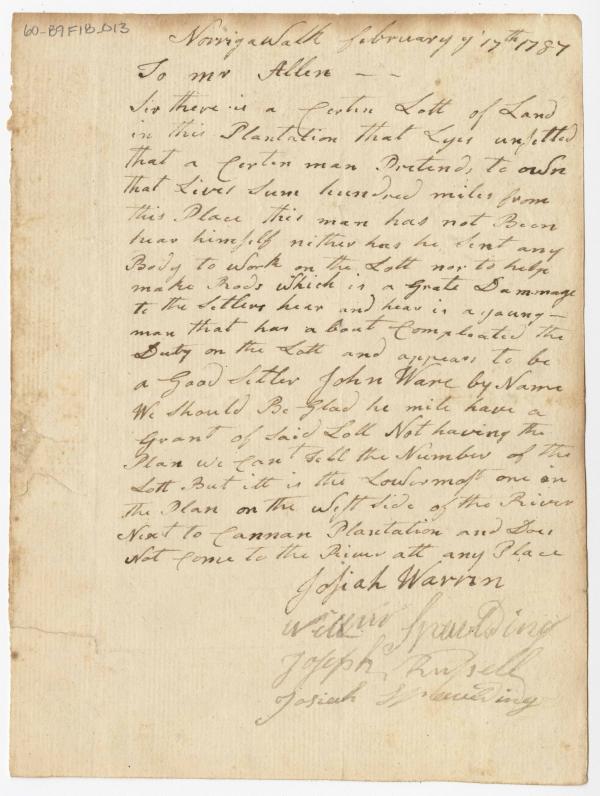 60-B9F1B_D13
Norrigawalk february ye 17th 1787
To mr Allen - -
Sir there is a Certen Lott of Land
in this Plantation that Lyes unsetled
that a Certen man Pretends to own
that Lives Sum hundred miles from
this Place this man has not Been
hear himself nither has he Sent any
Body to work on the Lott nor to help
make Rods which is a Grate Dammage
to the Setlers hear and hear is a young-
man that has about Compleated the
Duty on the Lott and appears to be
a Good Setler John Ware by Name
We Should Be Glad he mite have a
Grant of Said Lott Not having the
Plan we Cant tell the Number of the
Lott But itt is the Lowermost one on
the Plan on the West Side of the River
Next to Cannan Plantation and Does
Not Come to the River att any Place
Josiah Warrin
Spaulding
Joseph Russell
Josiah Spaulding